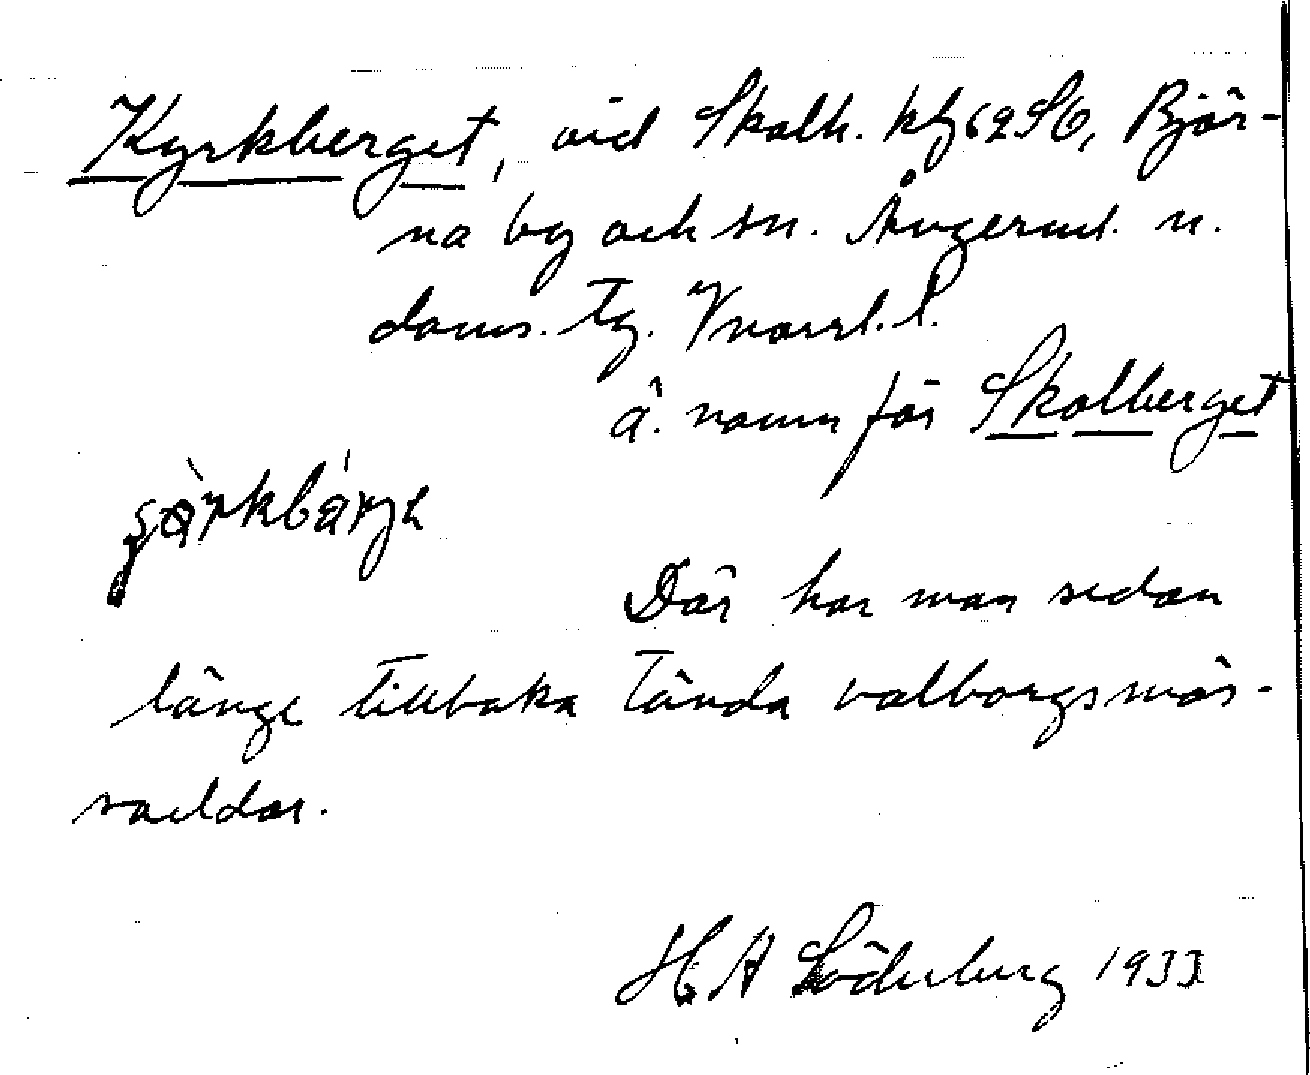 Kyrkberget, vid Skolh. kf 62 SO, Björ-
na by och sn. Ångerml. n.
doms. tg. Vnorrl. l.
ä. namn för Skolberget
Där har man sedan
länge tillbaka tända valborgsmäs-
soeldar.
H A Söderberg 1933